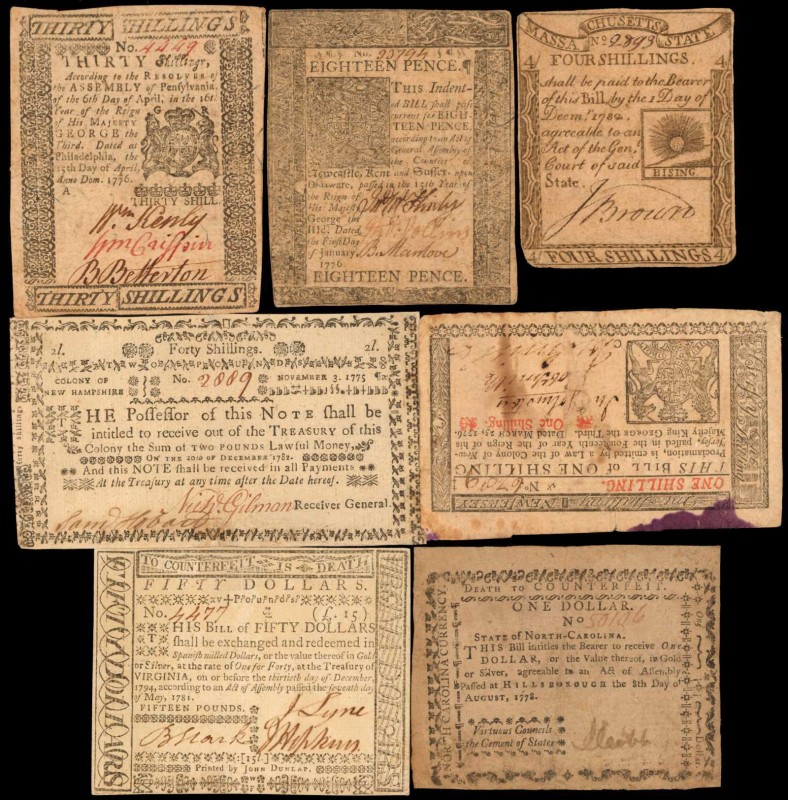 THIRTY SHILLINGS
No. 4449
THIRTY Shillings,
According to the RESOLVES of
the ASSEMBLY of Pensylvania,
of the 6th Day of April, in the 16th
Year of the Reign
of His MAJESTY
GEORGE the
Third. Dated at
Philadelphia, the
25th Day of April,
Anno Dom. 1776.
A
THIRTY SHILL.
Wm Kenly
B Betterton
THIRTY SHILLINGS
No. 23794
EIGHTEEN PENCE.
THIS Indent-
ed BILL shall pass
current for EIGH-
TEEN-PENCE,
according to an Act of
General Assembly of
the Counties of
Newcastle, Kent and Sussex, upon
Delaware, passed in the 15th Year of
the Reign of
His Majesty
George the
IIId. Dated
the First Day
of January,
1776.
B. Manlove
EIGHTEEN PENCE.
MASSACHUSETTS STATE.
No 2893
4 FOUR SHILLINGS. 4
shall be paid to the Bearer
of this Bill, by the 1 Day of
Decem. 1782.
agreeable to an
Act of the Gen.
Court of said
State.
RISING
J Brown
4 FOUR SHILLINGS 4
2l. Forty Shillings. 2l.
COLONY OF
NEW HAMPSHIRE
No. 2889
NOVEMBER 3. 1775
THE Possessor of this NOTE shall be
intitled to receive out of the TREASURY of this
Colony the Sum of TWO POUNDS Lawful Money,
ON THE 20th OF DECEMBER 1782.
And this NOTE shall be received in all Payments
At the Treasury at any time after the Date hereof.
Nichs. Gilman Receiver General.
ONE SHILLING
No
THIS BILL of ONE SHILLING
Proclamation, is emitted by a Law of the Colony of New-
Jersey, passed in the Fourteenth Year of the Reign of his
Majesty King GEORGE the Third. Dated MARCH 25, 1776.
One Shilling.
NEW-JERSEY
TO COUNTERFEIT IS DEATH.
FIFTY DOLLARS.
No. 4477 (£.15)
THIS Bill of FIFTY DOLLARS
shall be exchanged and redeemed in
Spanish milled Dollars, or the value thereof in Gold
or Silver, at the rate of One for Forty, at the Treasury of
VIRGINIA, on or before the thirtieth day of December,
1794, according to an Act of Assembly passed the seventh day
of May, 1781.
FIFTEEN POUNDS.
J Lyne
B Stark
J Hopkins
[15l.]
Printed by JOHN DUNLAP.
FIFTY DOLLARS
NORTH CAROLINA CURRENCY.
DEATH TO COUNTERFEIT.
ONE DOLLAR.
No
STATE OF NORTH-CAROLINA.
THIS Bill intitles the Bearer to receive One
DOLLAR, or the Value thereof, in Gold
or Silver, agreeable to an Act of Assembly
Passed at HILLSBOROUGH the 8th Day of
AUGUST, 1778.
Virtuous Councils
the Cement of States